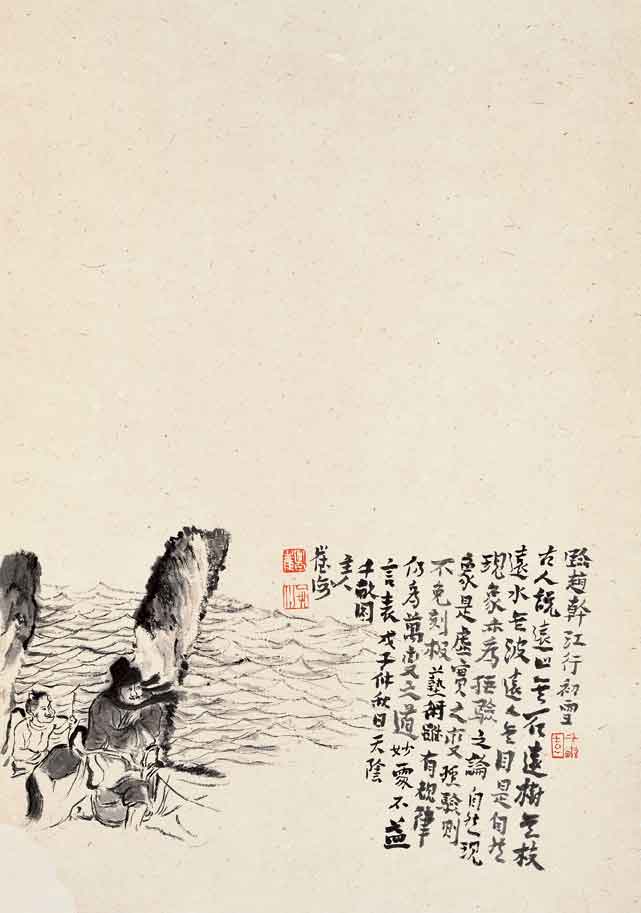 趙幹江行初雪
古人說遠山無石遠樹無枝
遠水無波遠人無目是自然
現象亦為經驗之論自然現
象是虛實之变經驗則
不免刻板藝術雖有規律
仍為萬变之道妙處不盡
言表戊子仲秋日天陰
千敬園
主人